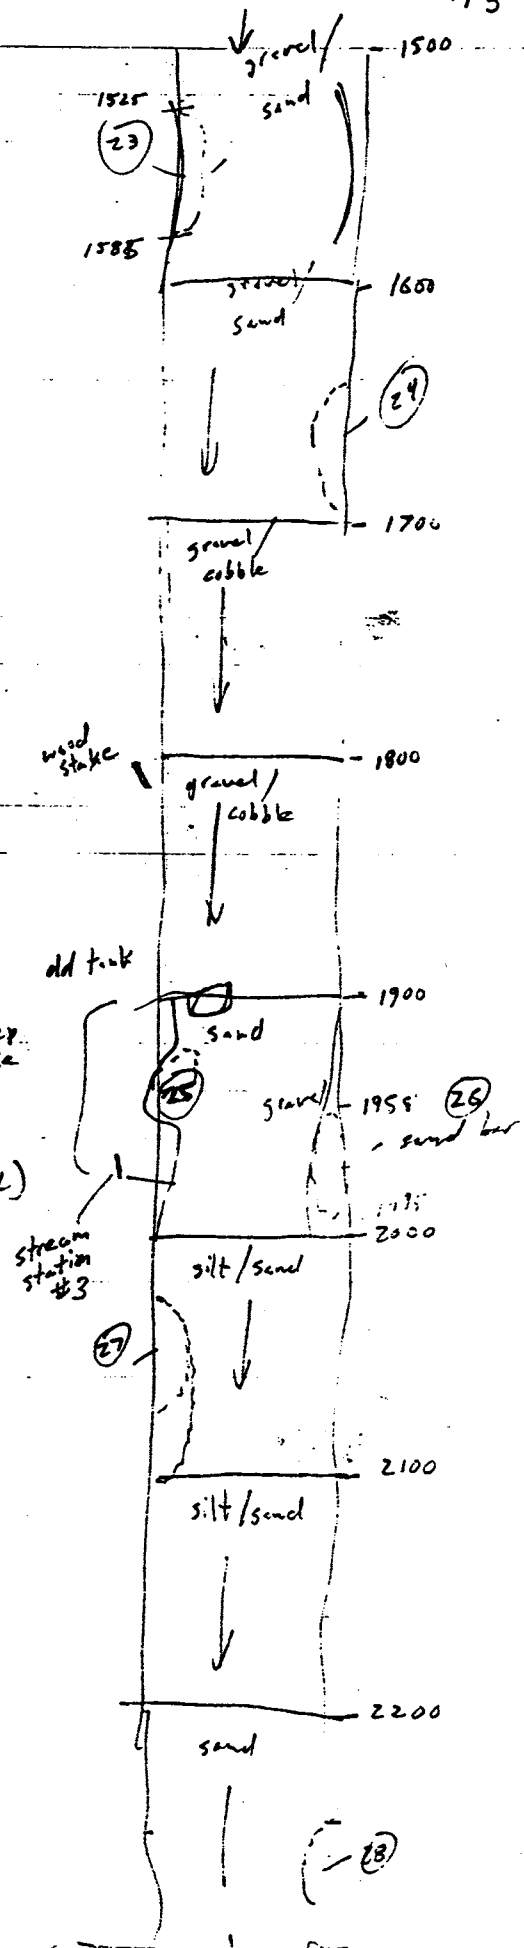 gravel/
1500
sand
1525
23
1585
gravel/
1600
sand
24
1700
gravel
cobble
wood
stake
1800
gravel/
cobble
old tank
1900
sand
25
gravel
1958
26
sand bar
stream
station
#3
2000
silt/sand
27
2100
silt/sand
2200
sand
28